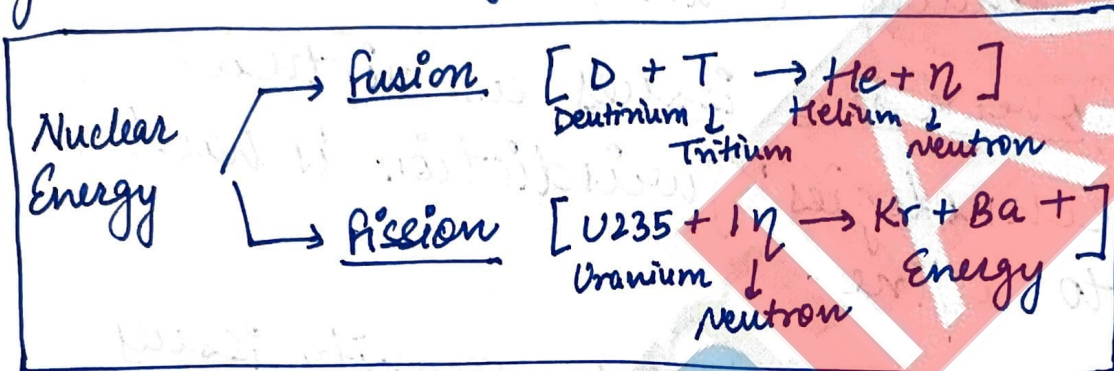 Nuclear Energy
fusion [D + T → He + n]
Deutinium ↓ Tritium Helium ↓ Neutron
fission [U235 + 1n → Kr + Ba + Energy]
Uranium ↓ Neutron